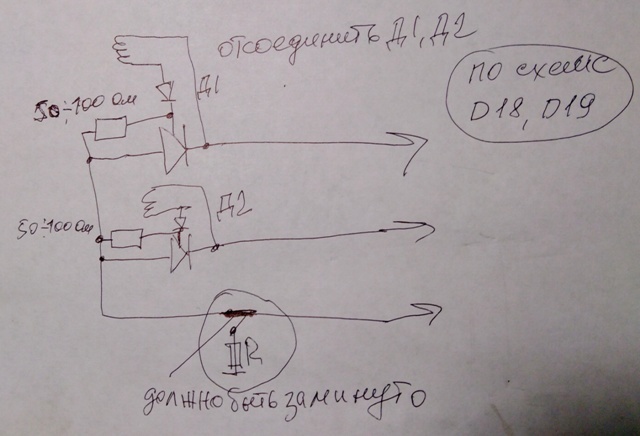 отсоединить Д1, Д2
по схеме
D18, D19
Д1
50÷100 ом
Д2
50÷100 ом
R
должно быть замкнуто